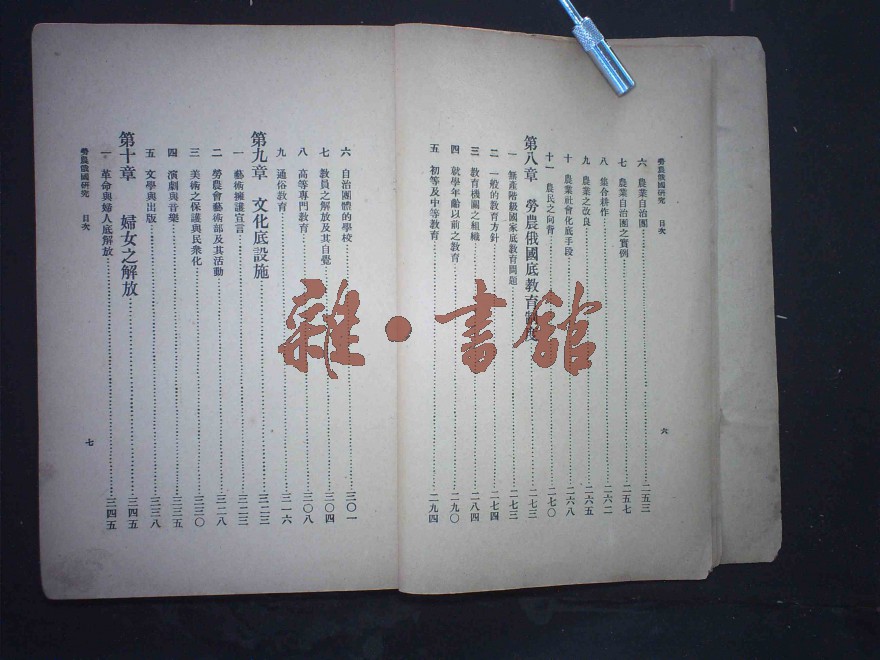 勞農俄國研究 目次
六 農業自治團……二五三
七 農業自治團之實例……二五七
八 集合耕作……二六二
九 農業之改良……二六五
十 農業社會化底手段……二六八
十一 農民之向背……二七〇
第八章 勞農俄國底教育制度……二七三
一 無產階級國家底教育問題……二七三
二 一般的教育方針……二七四
三 教育機關之組織……二八四
四 就學年齡以前之教育……二九〇
五 初等及中等教育……二九四
六
六 自治團體的學校……三〇一
七 教員之解放及其自覺……三〇四
八 高等專門教育……三〇八
九 通俗教育……三一六
第九章 文化底設施……三二三
一 藝術擁護宣言……三二三
二 勞農會藝術部及其活動……三二八
三 美術之保護與民衆化……三三〇
四 演劇與音樂……三三五
五 文學與出版……三三八
第十章 婦女之解放……三四五
一 革命與婦人底解放……三四五
勞農俄國研究 目次
七
雜·書館